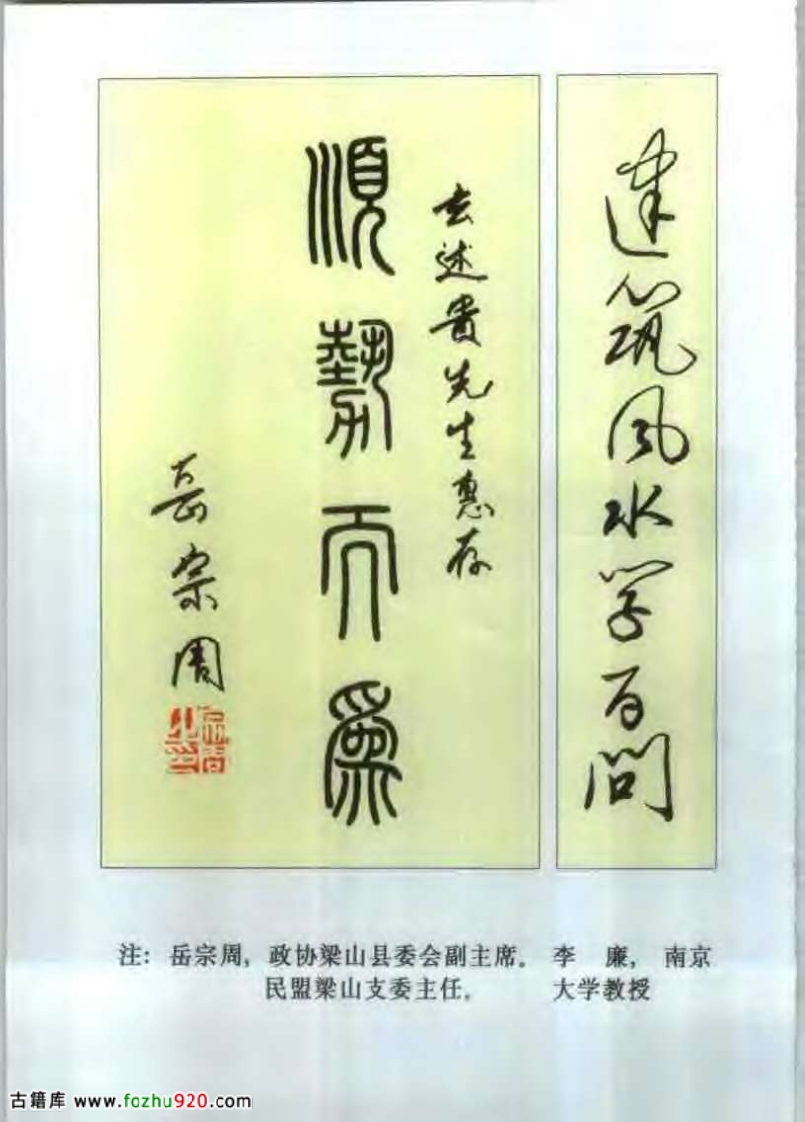 建筑风水学百问
述贵先生惠存
順勢而爲
岳宗周
注: 岳宗周, 政协梁山县委会副主席。
民盟梁山支委主任。
李 廉, 南京
大学教授
古籍库 www.fozhu920.com